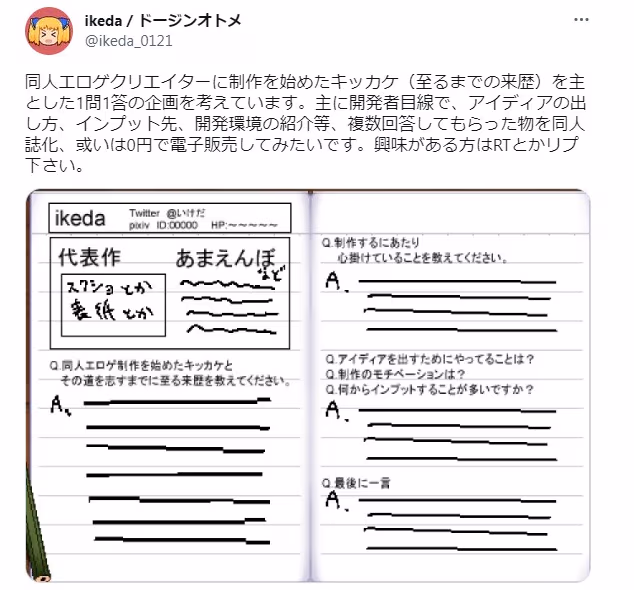 ikeda / ドージンオトメ
@ikeda_0121
同人エロゲクリエイターに制作を始めたキッカケ（至るまでの来歴）を主
とした1問1答の企画を考えています。主に開発者目線で、アイディアの出
し方、インプット先、開発環境の紹介等、複数回答してもらった物を同人
誌化、或いは0円で電子販売してみたいです。興味がある方はRTとかリプ
下さい。
ikeda
Twitter @いけだ
pixiv ID:00000 HP:～～～～～
代表作
あまえんぼ
など
スクショとか
表紙とか
Q.同人エロゲ制作を始めたキッカケと
その道を志すまでに至る来歴を教えてください。
A.
Q.制作するにあたり
心掛けていることを教えてください。
A.
Q.アイディアを出すためにやってることは？
Q.制作のモチベーションは？
Q.何からインプットすることが多いですか？
A.
Q.最後に一言
A.